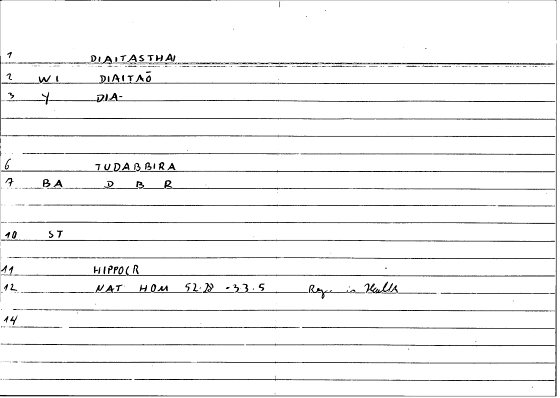 1 DIAITASTHAI
2 WI DIAITAŌ
3 Y DIA-
6 TUDABBIRA
7 BA D B R
10 ST
11 HIPPOCR
12 NAT HOM 52.28 -33.5 Reg. in Health
14